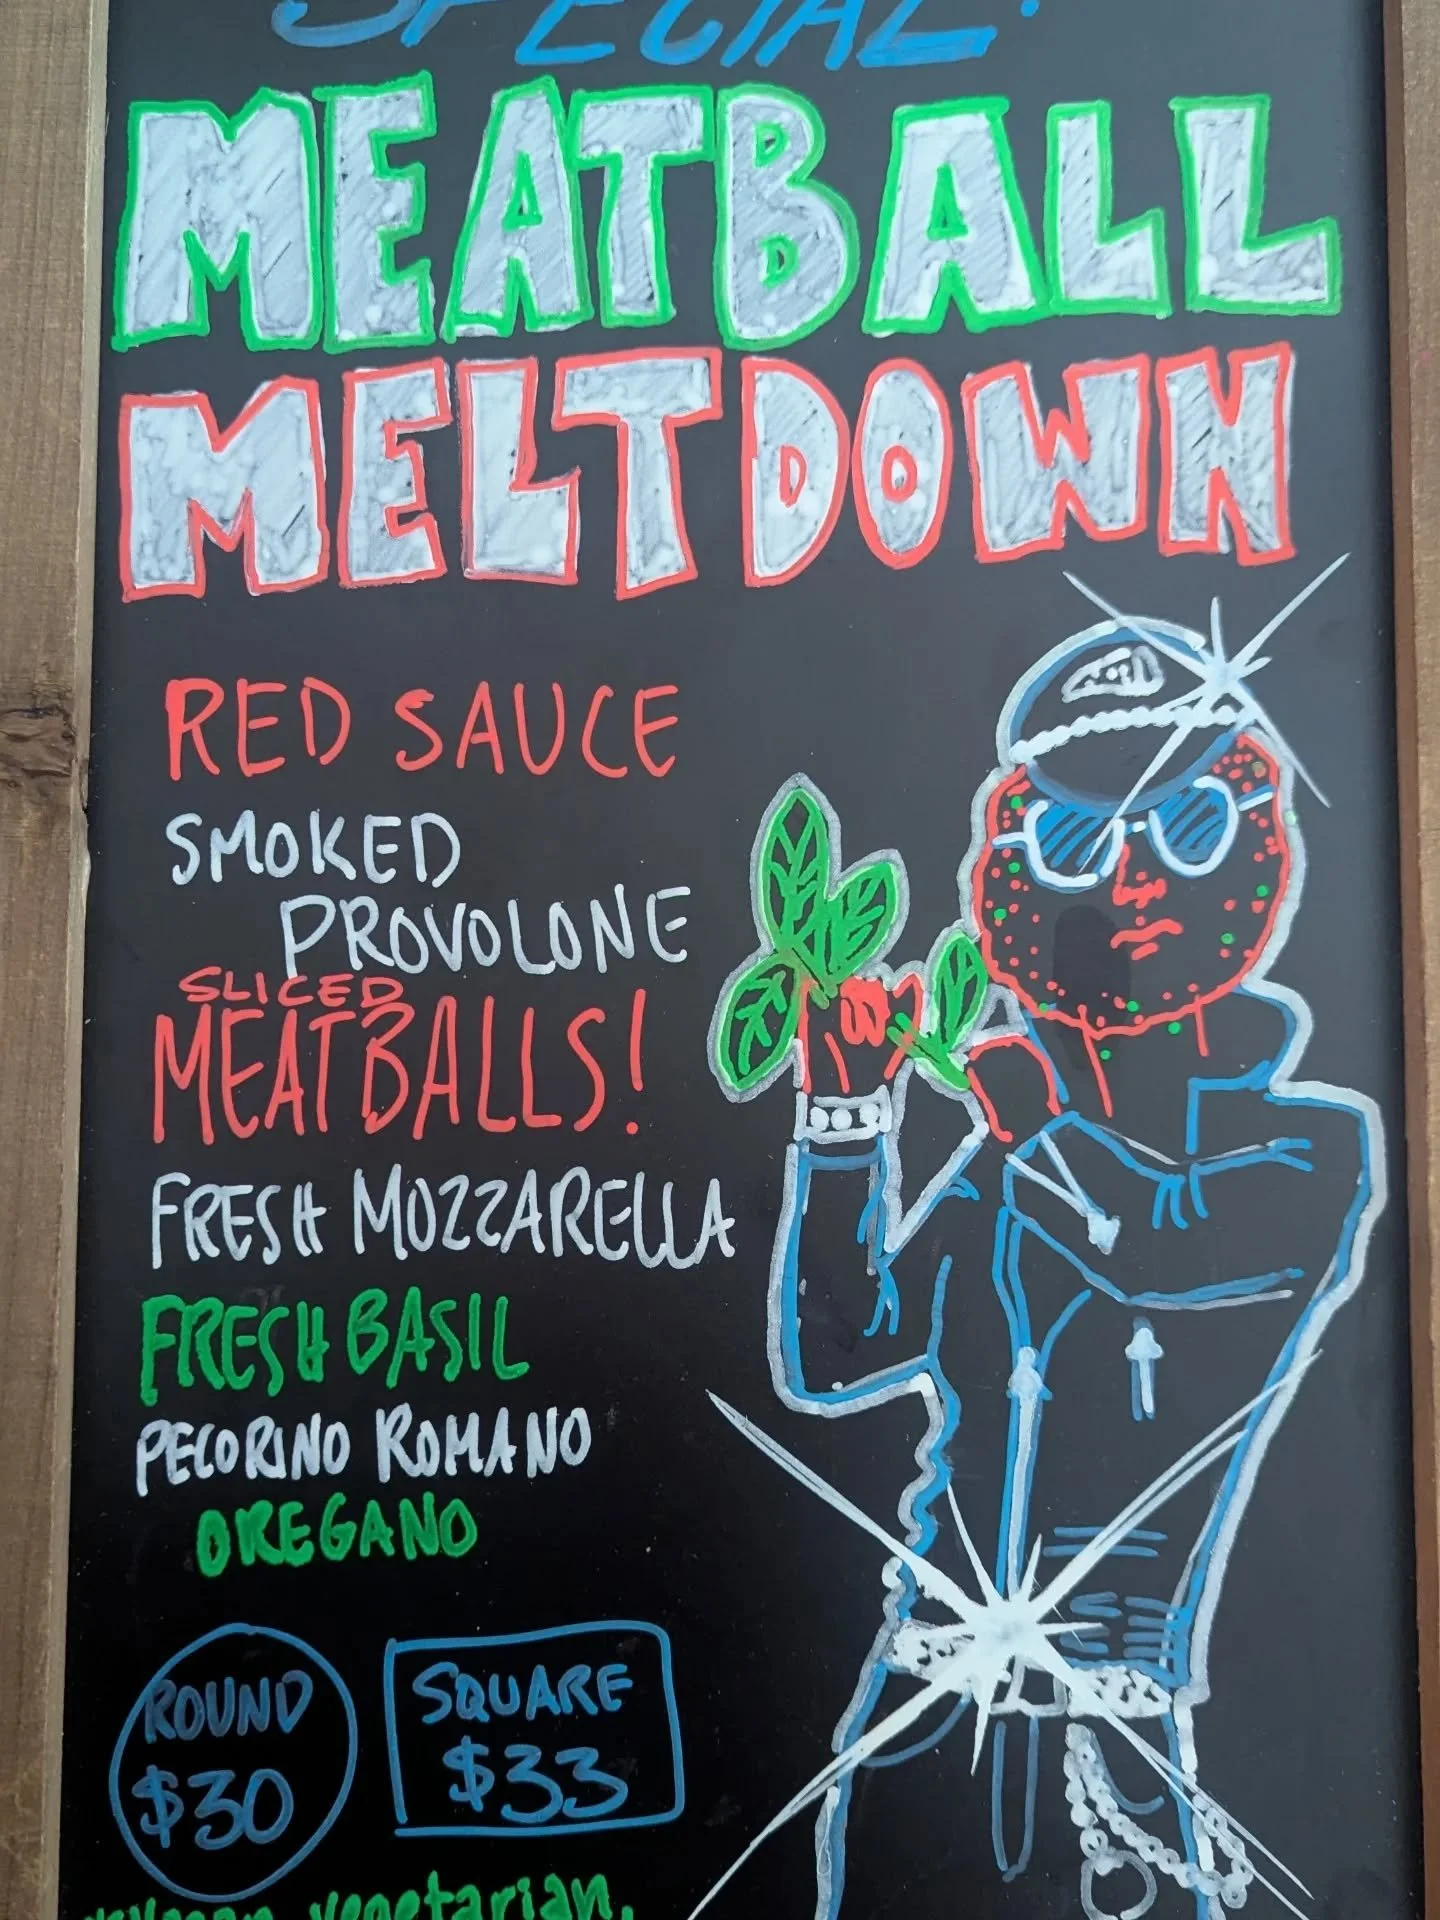 SPECIAL!
MEATBALL
MELTDOWN
RED SAUCE
SMOKED
PROVOLONE
SLICED
MEATBALLS!
FRESH MOZZARELLA
FRESH BASIL
PECORINO ROMANO
OREGANO
ROUND
$30
SQUARE
$33
vegetarian,